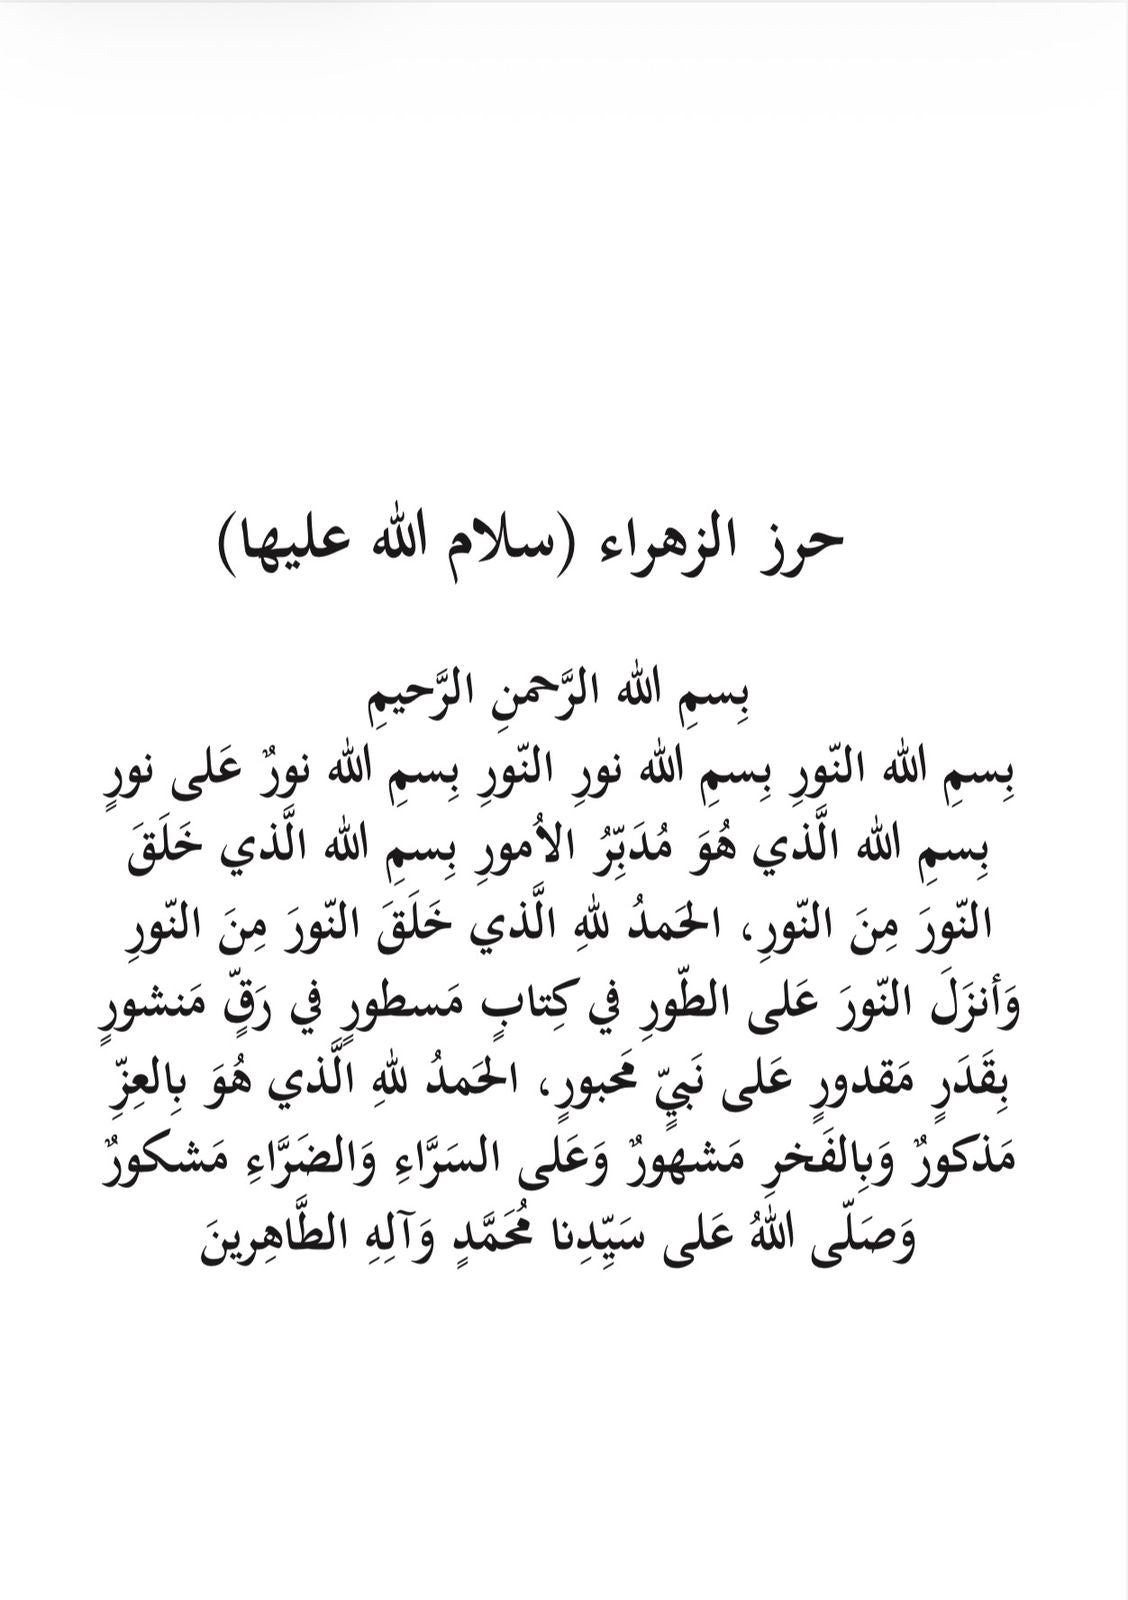 حرز الزهراء (سلام الله عليها)
بِسمِ الله الرَّحمنِ الرَّحيمِ
بِسمِ الله النّورِ بِسمِ الله نورِ النّورِ بِسمِ الله نورٌ عَلى نورٍ
بِسمِ الله الَّذي هُوَ مُدَبِّرُ الاُمورِ بِسمِ الله الَّذي خَلَقَ
النّورَ مِنَ النّورِ، الحَمدُ للهِ الَّذي خَلَقَ النّورَ مِنَ النّورِ
وَأنزَلَ النّورَ عَلى الطّورِ في كِتابٍ مَسطورٍ في رَقٍّ مَنشورٍ
بِقَدَرٍ مَقدورٍ عَلى نَبيٍّ مَحبورٍ، الحَمدُ للهِ الَّذي هُوَ بِالعِزِّ
مَذكورٌ وَبِالفَخرِ مَشهورٌ وَعَلى السَرَّاءِ وَالضَرَّاءِ مَشكورٌ
وَصَلّى اللهُ عَلى سَيِّدِنا مُحَمَّدٍ وَآلِهِ الطَّاهِرينَ